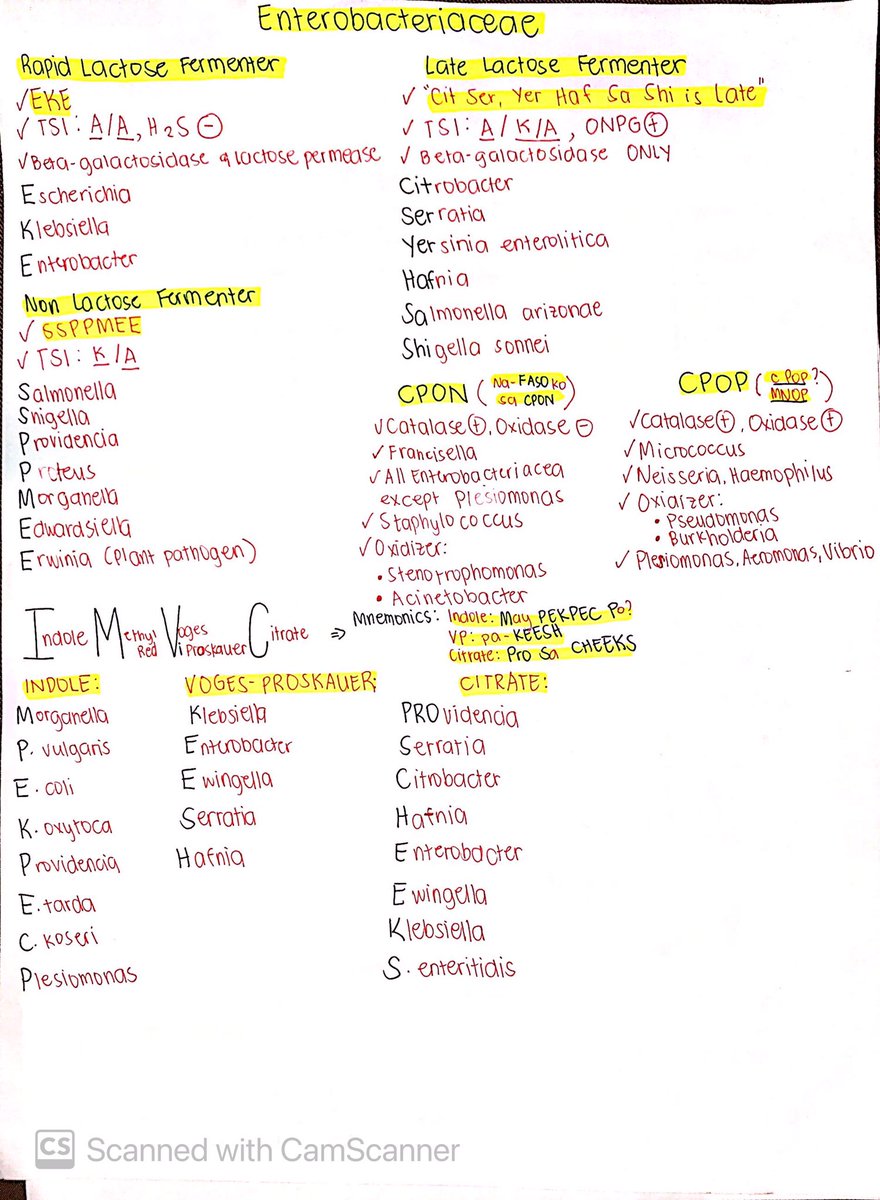 Enterobacteriaceae
Rapid Lactose Fermenter
✓ EKE
✓ TSI: A/A, H2S ⊖
✓ Beta-galactosidase & lactose permease
Escherichia
Klebsiella
Enterobacter
Non Lactose Fermenter
✓ SSPPMEE
✓ TSI: K/A
Salmonella
Shigella
Providencia
Proteus
Morganella
Edwardsiella
Erwinia (Plant pathogen)
Late Lactose Fermenter
✓ "Cit Ser, Yer Haf Sa Shi is late"
✓ TSI: A/K/A, ONPG⊕
✓ Beta-galactosidase ONLY
Citrobacter
Serratia
Yersinia enterolitica
Hafnia
Salmonella arizonae
Shigella sonnei
CPON (Na-FASO ko sa CPON)
✓ Catalase⊕, Oxidase ⊖
✓ Francisella
✓ All Enterobacteriacea
except Plesiomonas
✓ Staphylococcus
✓ Oxidizer:
• Stenotrophomonas
• Acinetobacter
CPOP (C POP? MNOP)
✓ Catalase⊕, Oxidase⊕
✓ Micrococcus
✓ Neisseria, Haemophilus
✓ Oxidizer:
• Pseudomonas
• Burkholderia
✓ Plesiomonas, Aeromonas, Vibrio
Indole Methyl Red Voges Proskauer Citrate ⇒ Mnemonics: Indole: May PEKPEC Po?
VP: pa-KEESH
Citrate: Pro Sa CHEEKS
INDOLE:
Morganella
P. vulgaris
E. coli
K. oxytoca
Providencia
E. tarda
C. koseri
Plesiomonas
VOGES-PROSKAUER:
Klebsiella
Enterobacter
Ewingella
Serratia
Hafnia
CITRATE:
PROvidencia
Serratia
Citrobacter
Hafnia
Enterobacter
Ewingella
Klebsiella
S. enteritidis
CS Scanned with CamScanner